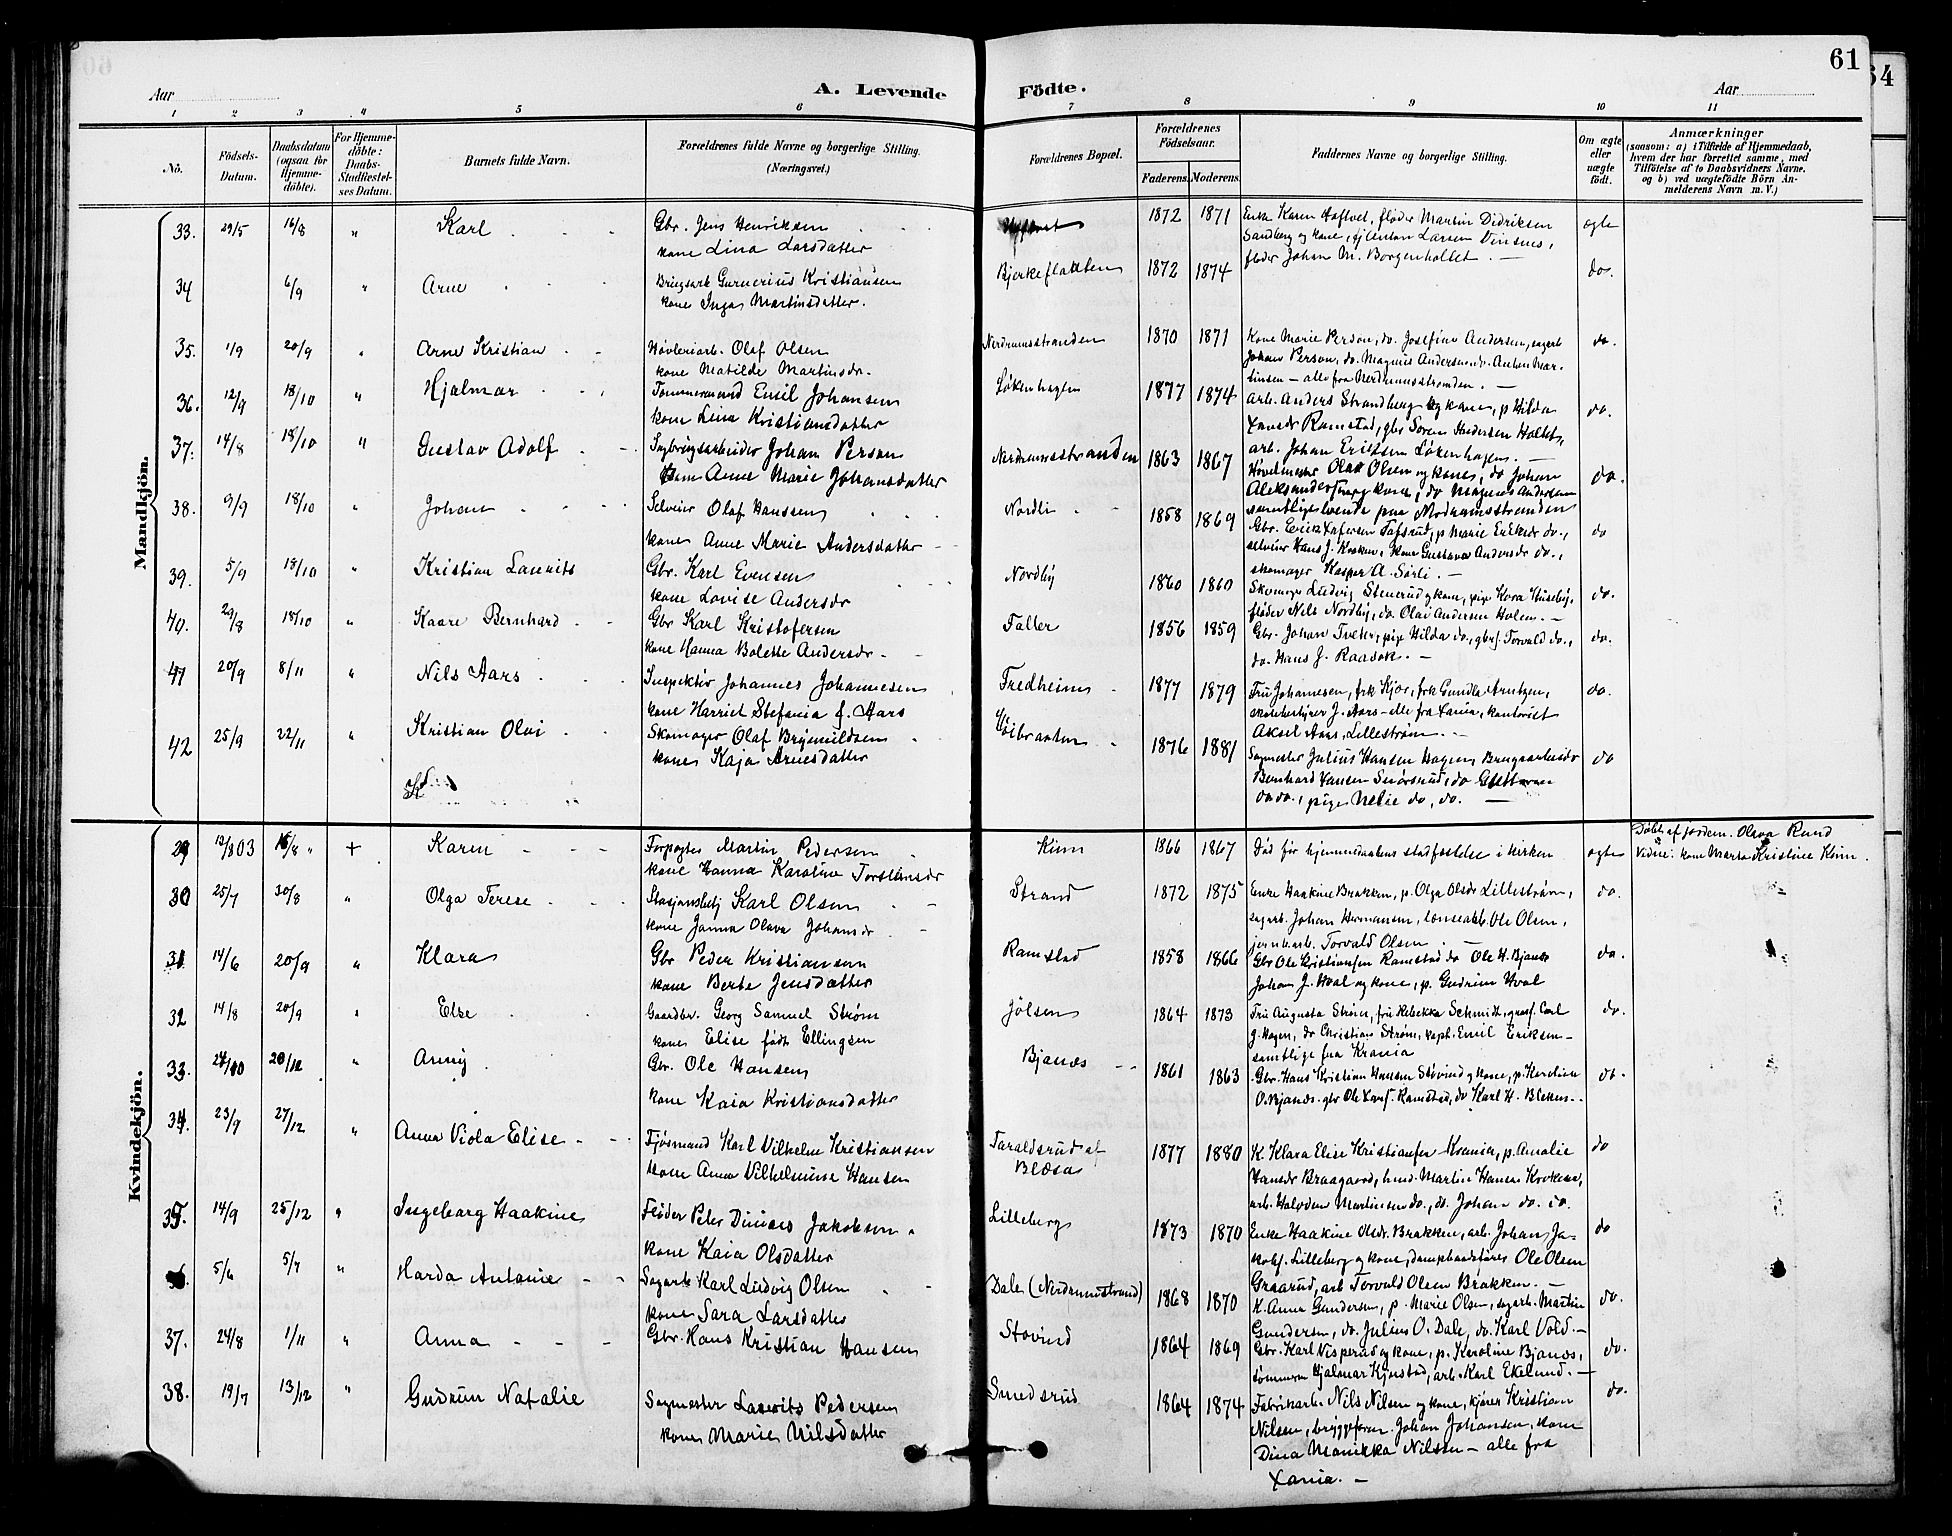 61
64
Aar
A. Levende
Födte.
Aar
1 2 3 4 5 6 7 8 9 10 11
No.
Födsels-Datum.
Daabsdatum (ogsaa for Hjemmedöbte).
For Hjemmedöbte: Daabs-Stadfæstelses Datum.
Barnets fulde Navn.
Forældrenes fulde Navne og borgerlige Stilling. (Næringsvei.)
Forældrenes Bopæl.
Forældrenes Födselsaar.
Faderens. Moderens.
Faddernes Navne og borgerlige Stilling.
Om ægte eller uægte födt.
Anmærkninger
(saasom: a) i Tilfælde af Hjemmedaab, hvem der har forrettet samme, med Tilföielse af to Daabsvidners Navne. og b) ved uægtefödte Börn Anmelderens Navn m. V.)
Mandkjön.
33. 29/5 16/8 " Karl Gbr. Jens Henriksen 1872 1871 Enke Karen Aaftvet, fløder Martin Didriksen ægte
kone Lina Larsdatter Sandberg og kone, Larsen Vinsnes,
fløder Johan M. Borgenholtet. —
34 6/9 " Arne Brugsarb Gunerius Kristiansen Bjerkeflaatten 1872 1874 do.
kone Inga Martinsdatter.
35. 1/9 20/9 " Arne Kristian Høvleriarb. Olaf Olsen Nerdrumsstranden 1870 1871 Kone Marie Person, do. Josefine Andersen, sagarb do.
kone Matilde Martinsdr. Johan Person, do. Magnus Andersen do. Anton Mar-
tinsen — alle fra Nerdrumsstranden. —
36. 12/9 18/10 " Hjalmar Tømmermand Emil Johansen Løkenhagen 1877 1874 arb. Anders Strandberg og kone, p Hilda do.
kone Lina Kristiansdatter Ramstad, gbr Søren Andersen Holtet,
arb. Johan Eriksen Løkenhagen. —
37. 14/8 18/10 " Gustav Adolf Sagbrugsarbeider Johan Person Nerdrumsstranden 1863 1867 Høvelmester Olaf Olsen og kone, do Johan do.
kone Anne Marie Johansdatter Aleksandersen og kone, do Magnus Andersen
38. 9/9 18/10 " Johan Selveier Olaf Hanssen Nordli 1858 1869 Gbr. Erik p Marie Eriksdr do., do
kone Anne Marie Andersdatter selveier Hans J. kone Gustava Andersdr do.,
skomager Kasper A. Sørli. —
39. 5/9 18/10 " Kristian Laurits Gbr. Karl Evensen Nordby 1860 1860 Skomager Ludvig Stenerud og kone, pige Huseby, do.
kone Lovise Andersdr fløder Nils Nordby, do. Olai Andersen Holen. —
40. 29/8 18/10 " Kaare Bernhard Gbr Karl Kristofersen Faller 1856 1859 Gbr. Johan pige Hilda do., gbrs. Torvald do., do.
kone Hanna Bolette Andersdr do. Hans J. Raasok. —
41 20/9 8/11 " Nils Aars Inspektør Johannes Johannesen Fredheim 1877 1879 Fru Johannesen, frk Kjør, frk Gunilla Arntzen, do.
kone Harriet Stefania f. Aars skolebestyrer J. Aars — alle fra Xania, kontorist
Aksel Aars, Lillestrøm. —
42 25/9 22/11 " Kristian Olai Skomager Olaf Brynildsen Høibraaten 1876 1881 Sagmester Julius Hansen Hagen, Brugsarbeider do
kone Kaja Arnesdatter Bernhard Hansen do
do do., pige Nelie do, do. —
Kvindekjön.
29 12/8 03 15/8 " + Karen Forpagter Martin Pedersen Kinn 1866 1867 Død før hjemmedaabens stadfæstelse i kirken ægte Døbt af jordem. Olava Rund
kone Hanna Karoline Torstensdr Vidne: kone Marta Kristine Kinn.
30 25/7 30/8 " Olga Terese Stasjonsbetj Karl Olsen Strand 1872 1875 Enke Haakine Brakken, p. Olga Olsdr Lillestrøm, do.
kone Janna Olava Johansdr sagarb. Johan Hermansen, Ole Olsen,
jernb.arb. Torvald Olsen. —
31 14/6 20/9 " Klara Gbr Peder Kristiansen Ramstad 1858 1866 Gbr Ole Kristiansen Ramstad do Ole H. Bjanes do.
kone Berte Jensdatter Johan J. Hval og kone, p. Gudrun Hval
32 14/8 20/9 " Else Gaardbr. Georg Samuel Strøm Jølsen 1864 1873 Fru Augusta Strøm, fru Rebekka Schmidt, gross. Carl do.
kone Elise født Ellingsen J. Hagen, do Christian Strøm, kapt. Emil Eriksen —
samtlige fra Krania
33. 24/10 20/12 " Anny Gbr. Ole Hansen Bjanæs 1861 1863 Gbr. Hans Kristian Hansen Stovind og kone, p. Karoline do.
kone Kaia Kristiansdatter O. Bjanæs. gbr Ole Ramstad, do Karl H. Bleken.
34. 23/9 27/12 " Anna Viola Elise Fjøsmand Karl Vilhelm Kristiansen Taraldsrud af Blæsa 1877 1880 K. Klara Elise Kristiansen Krania, p. Amalie do
kone Anna Vilhelmine Hansen Hansdr Braagaard, husmd. Martin Hansen Krokene,
arb. Halvdan Martinsen do., do. Johan do. do.
35. 14/9 25/12 " Ingeborg Haakine Fløder Peter Dinius Jakobsen Lilleberg 1873 1870 Enke Haakine Olsdr. Brakken, arb. Johan Ja- do
kone Kaia Olsdatter kobs. Lilleberg og kone, dampbaadfører Ole Olsen
Graarud, arb Torvald Olsen Brakken. —
5/6 5/7 " Harda Antonie Sagarb Karl Ludvig Olsen Dalen (Nerdrumstrand) 1868 1870 K. Anna Gundersen, p. Marie Olsen, sagarb. Martin do.
kone Sara Larsdatter Gundersen, do. Julius O. Dale, do. Karl Vold. —
37. 24/8 1/11 " Anna Gbr. Hans Kristian Hansen Stovind 1864 1869 Gbr. Karl Nisperud og kone, p. Karoline Bjanæs, do.
Hjalmar Kjustad, arb. Karl Ekelund. —
38. 19/7 13/12 " Gudrun Natalie Sagmester Lauritz Pedersen Smedsrud 1864 1874 Fabrikarb. Nils Nilsen og kone, kjører Kristian do.
kone Marie Nilsdatter Nilsen, bryggeform. Johan Johansen, kone
Dina Monikka Nilsen — alle fra
Xania. —